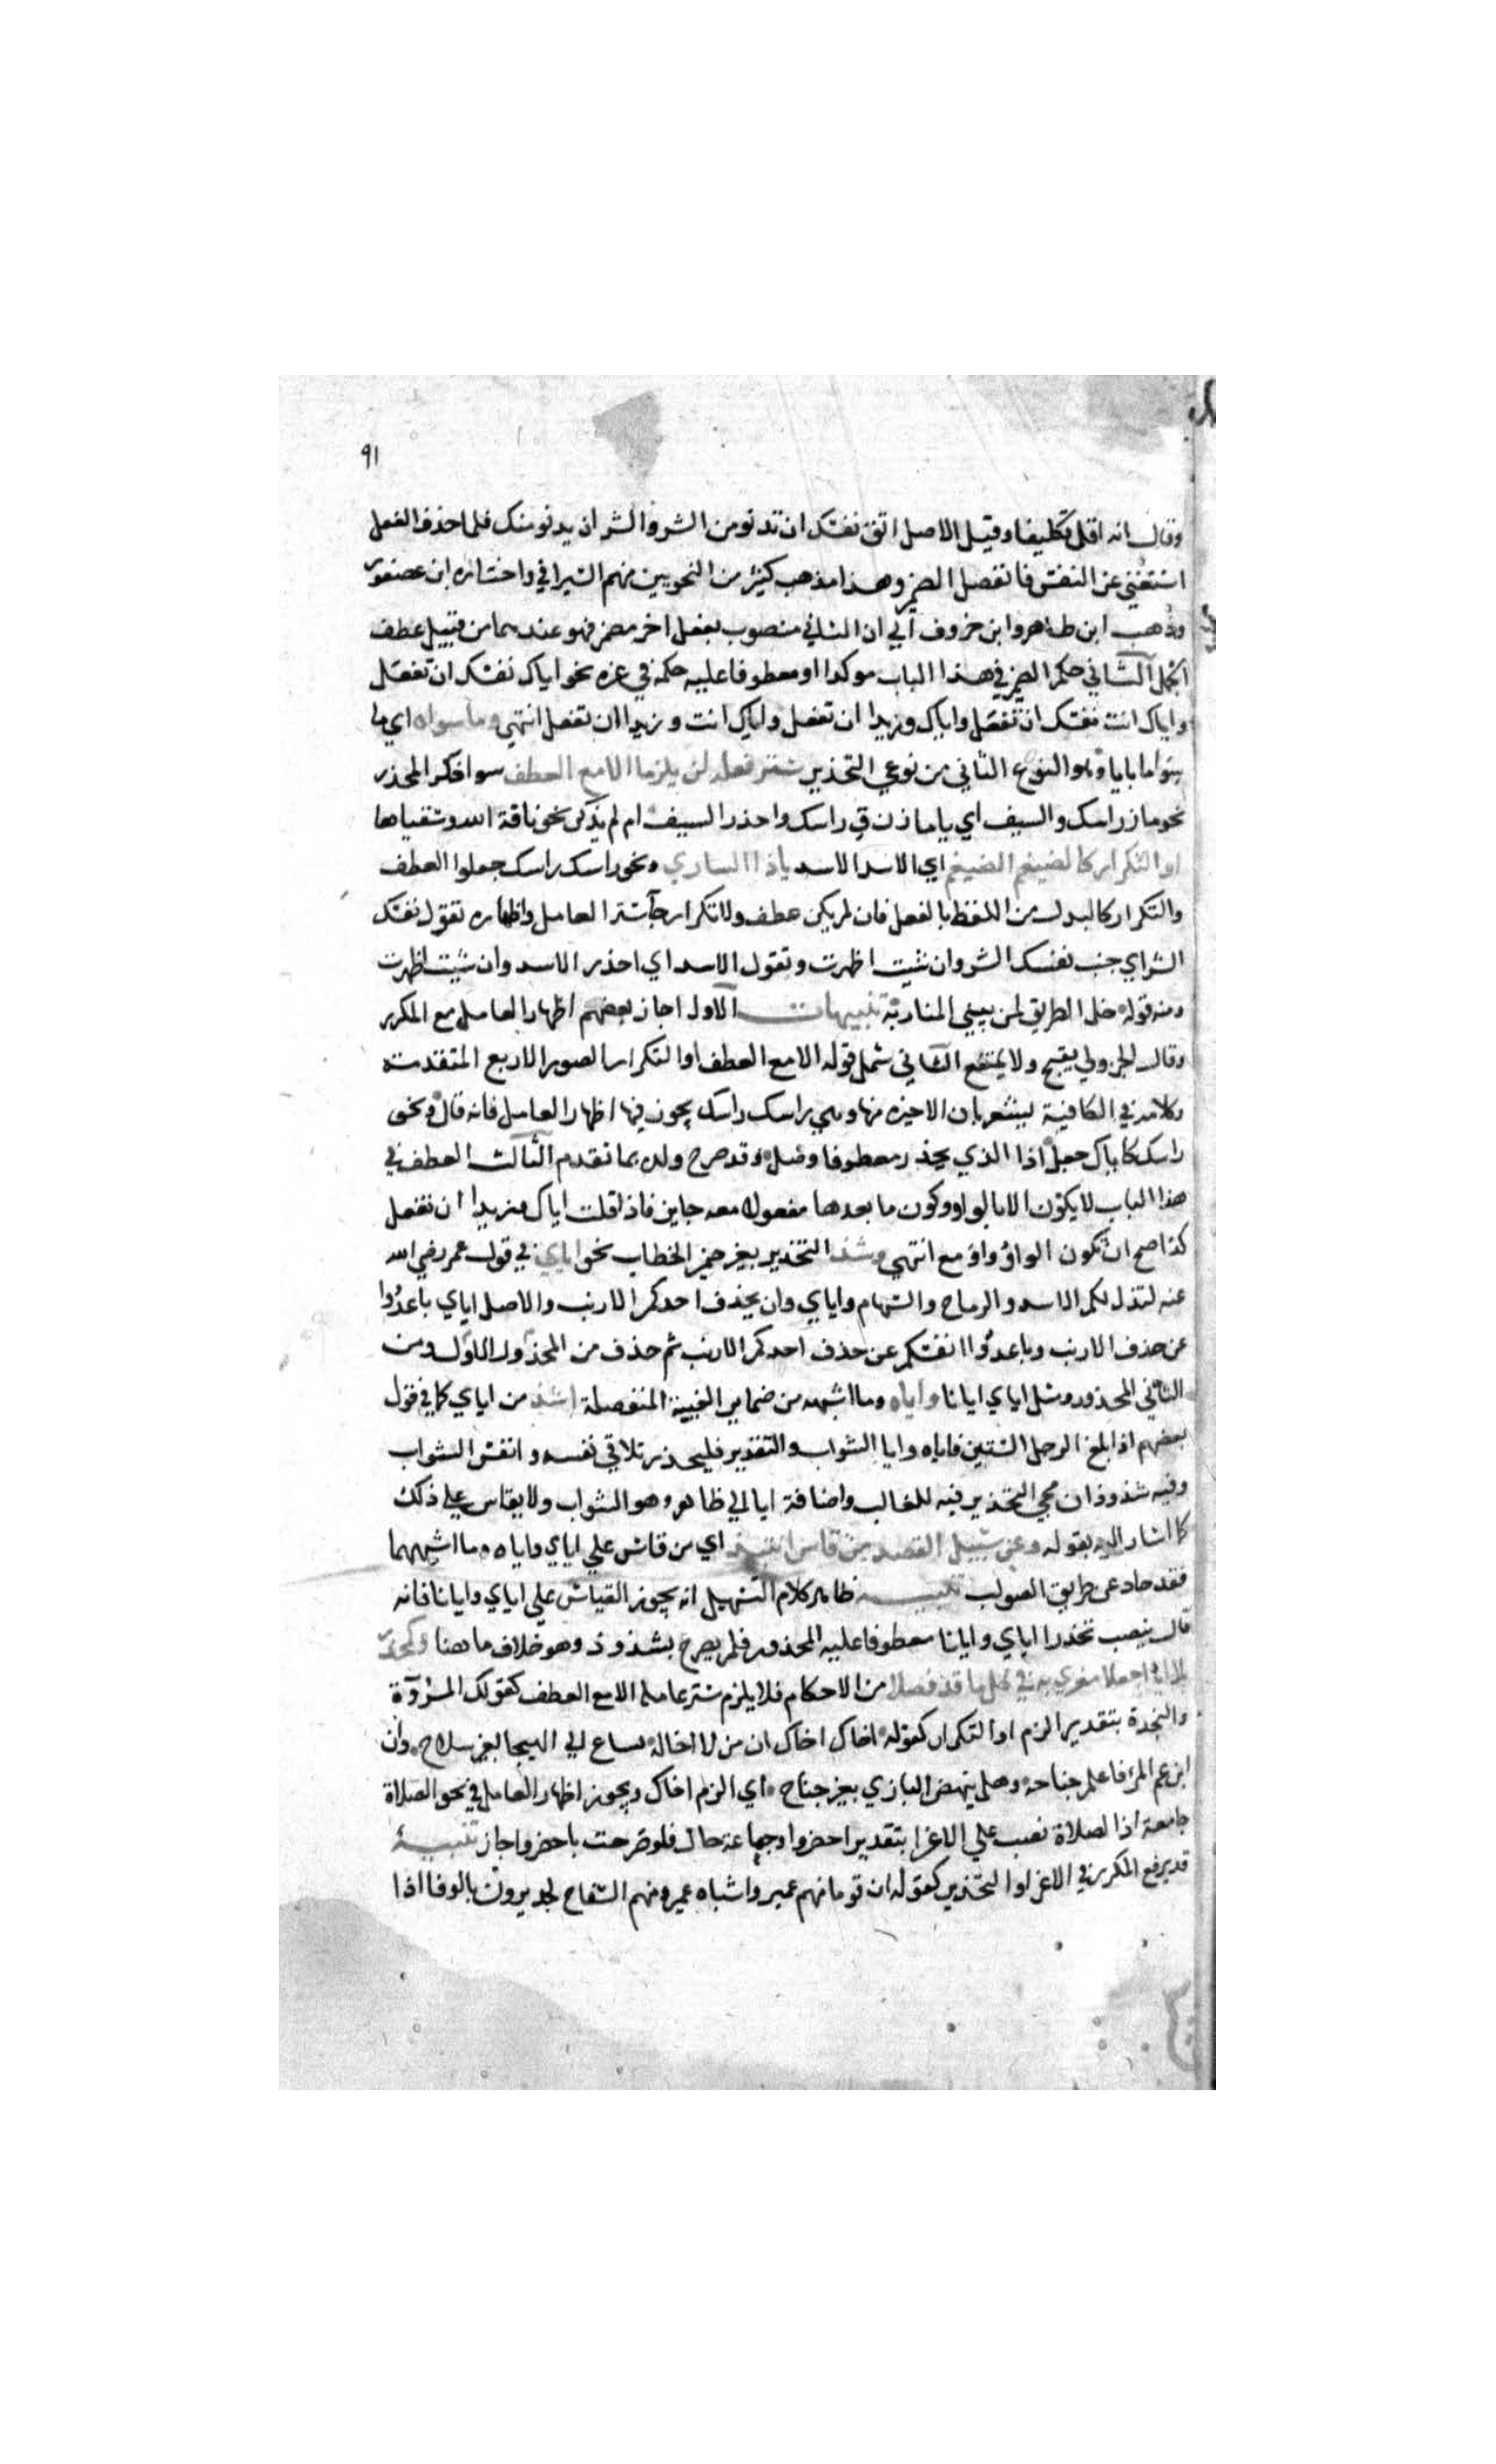 ٩١
وقال انه اقل تكليفا وقيل الاصل اتق نفسك ان تدنو من الشر والشر ان يدنو منك فلما حذف الفعل
استغني عن النفس فانفصل الضمير وهذا مذهب كثير من النحويين منهم السيرافي واختاره ابن عصفور
وذهب ابن طاهر وابن خروف الي ان الثاني منصوب بفعل اخر مضمر فهو عندهما من قبيل عطف
الجمل الثاني حكم الضمير في هذا الباب موكدا او معطوفا عليه حكمه في غيره نحو اياك نفسك ان تفعل
واياك انت نفسك ان تفعل واياك وزيدا ان تفعل واياك انت وزيدا ان تفعل انتهي وما سواه اي ما
سوا ما بايا وهو النوع الثاني من نوعي التحذير ستر فعله لن يلزما الا مع العطف سوا ذكر المحذر
نحو ماز راسك والسيف اي يا مازن ق راسك واحذر السيف ام لم يذكر نحو ناقة الله وسقياها
او التكرار كالضيغم الضيغم اي الاسد الاسد ياذا الساري ونحو راسك راسك جعلوا العطف
والتكرار كالبدل من اللفظ بالفعل فان لم يكن عطف ولا تكرار جاز ستر العامل واظهاره تقول نفسك
الشر اي جنب نفسك الشر وان شيت اظهرت وتقول الاسد اي احذر الاسد وان شيت اظهرت
ومنه قوله خل الطريق لمن يبني المنار به تنبيهات الاول اجاز بعضهم اظهار العامل مع المكرر
وقال الجزولي يقبح ولا يمتنع الثاني شمل قوله الا مع العطف او التكرار الصور الاربع المتقدمة
وكلامه في الكافية يشعر بان الاخيرة منها وهي راسك راسك يجوز فيها اظهار العامل فانه قال ونحو
راسك كاياك جعل اذا الذي يحذر معطوفا وصل وقد صرح ولده بما تقدم الثالث العطف في
هذا الباب لا يكون الا بالواو وكون ما بعدها مفعولا معه جايز فاذا قلت اياك وزيدا ان تفعل
كذا صح ان تكون الواو واو مع انتهي وشذ التحذير بغير ضمير الخطاب نحو اياي في قول عمر رضي الله
عنه لتذل لكم الاسد والرماح والسهام واياي وان يحذف احدكم الارنب والاصل اياي باعدوا
عن حذف الارنب وباعدوا انفسكم عن حذف احدكم الارنب ثم حذف من المحذور الاول ومن
الثاني المحذور ومثل اياي ايانا واياه وما اشبهه من ضماير الغيبة المنفصلة اشذ من اياي كما في قول
بعضهم اذا بلغ الرجل الستين فاياه وايا الشواب والتقدير فليحذر تلاقي نفسه وانفس الشواب
وفيه شذوذان مجي التحذير فيه للغايب واضافة ايا الي ظاهر وهو الشواب ولا يقاس علي ذلك
كما اشار اليه بقوله وعن سبيل القصد من قاس انتبذ اي من قاس علي اياي واياه وما اشبههما
فقد حاد عن طريق الصواب تنبيه ظاهر كلام التسهيل انه يجوز القياس علي اياي وايانا فانه
قال ينصب تحذيرا اياي وايانا معطوفا عليه المحذور فلم يصرح بشذوذ وهو خلاف ما هنا وكمحذر
بلا ايا اجعلا مغري به في كل ما قد فصلا من الاحكام فلا يلزم ستر عامله الا مع العطف كقولك المروّة
والنجدة بتقدير الزم او التكرار كقوله اخاك اخاك ان من لا اخا له كساع الي الهيجا بغير سلاح وان
ابن عم المرء فاعلم جناحه وهل ينهض البازي بغير جناح اي الزم اخاك ويجوز اظهار العامل في نحو الصلاة
جامعة اذ الصلاة نصب علي الاغرا بتقدير احضروا وجامعة حال فلو صرحت باحضروا جاز تنبيه
قد يرفع المكرر في الاغرا والتحذير كقوله ان قوما منهم عمير واشباه عمير ومنهم السفاح لجديرون بالوفا اذا